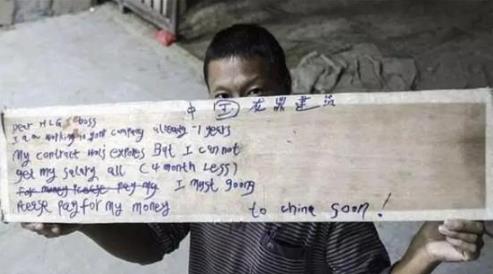 中 工 龙鼎建筑
Dear HLG boss
I am working in your company already -1 years
My contract has expores But I can not
get my salary all (4 month Less)
I must going
Please Pay for My money
to china soon!